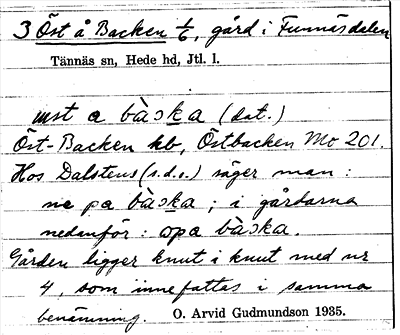 3 Öst å Backen 1/6, gård i Funnäsdalen
Tännäs sn, Hede hd, Jtl. l.
ust a bàɔka (dat.)
Öst-Backen kb, Östbacken Mo 201.
Hos Dalstens (s.d.o.) säger man:
ne pa bàɔka; i gårdarna
nedanför: opa bàɔka.
Gården ligger knut i knut med nr
4, som innefattas i samma
benämning. O. Arvid Gudmundson 1935.